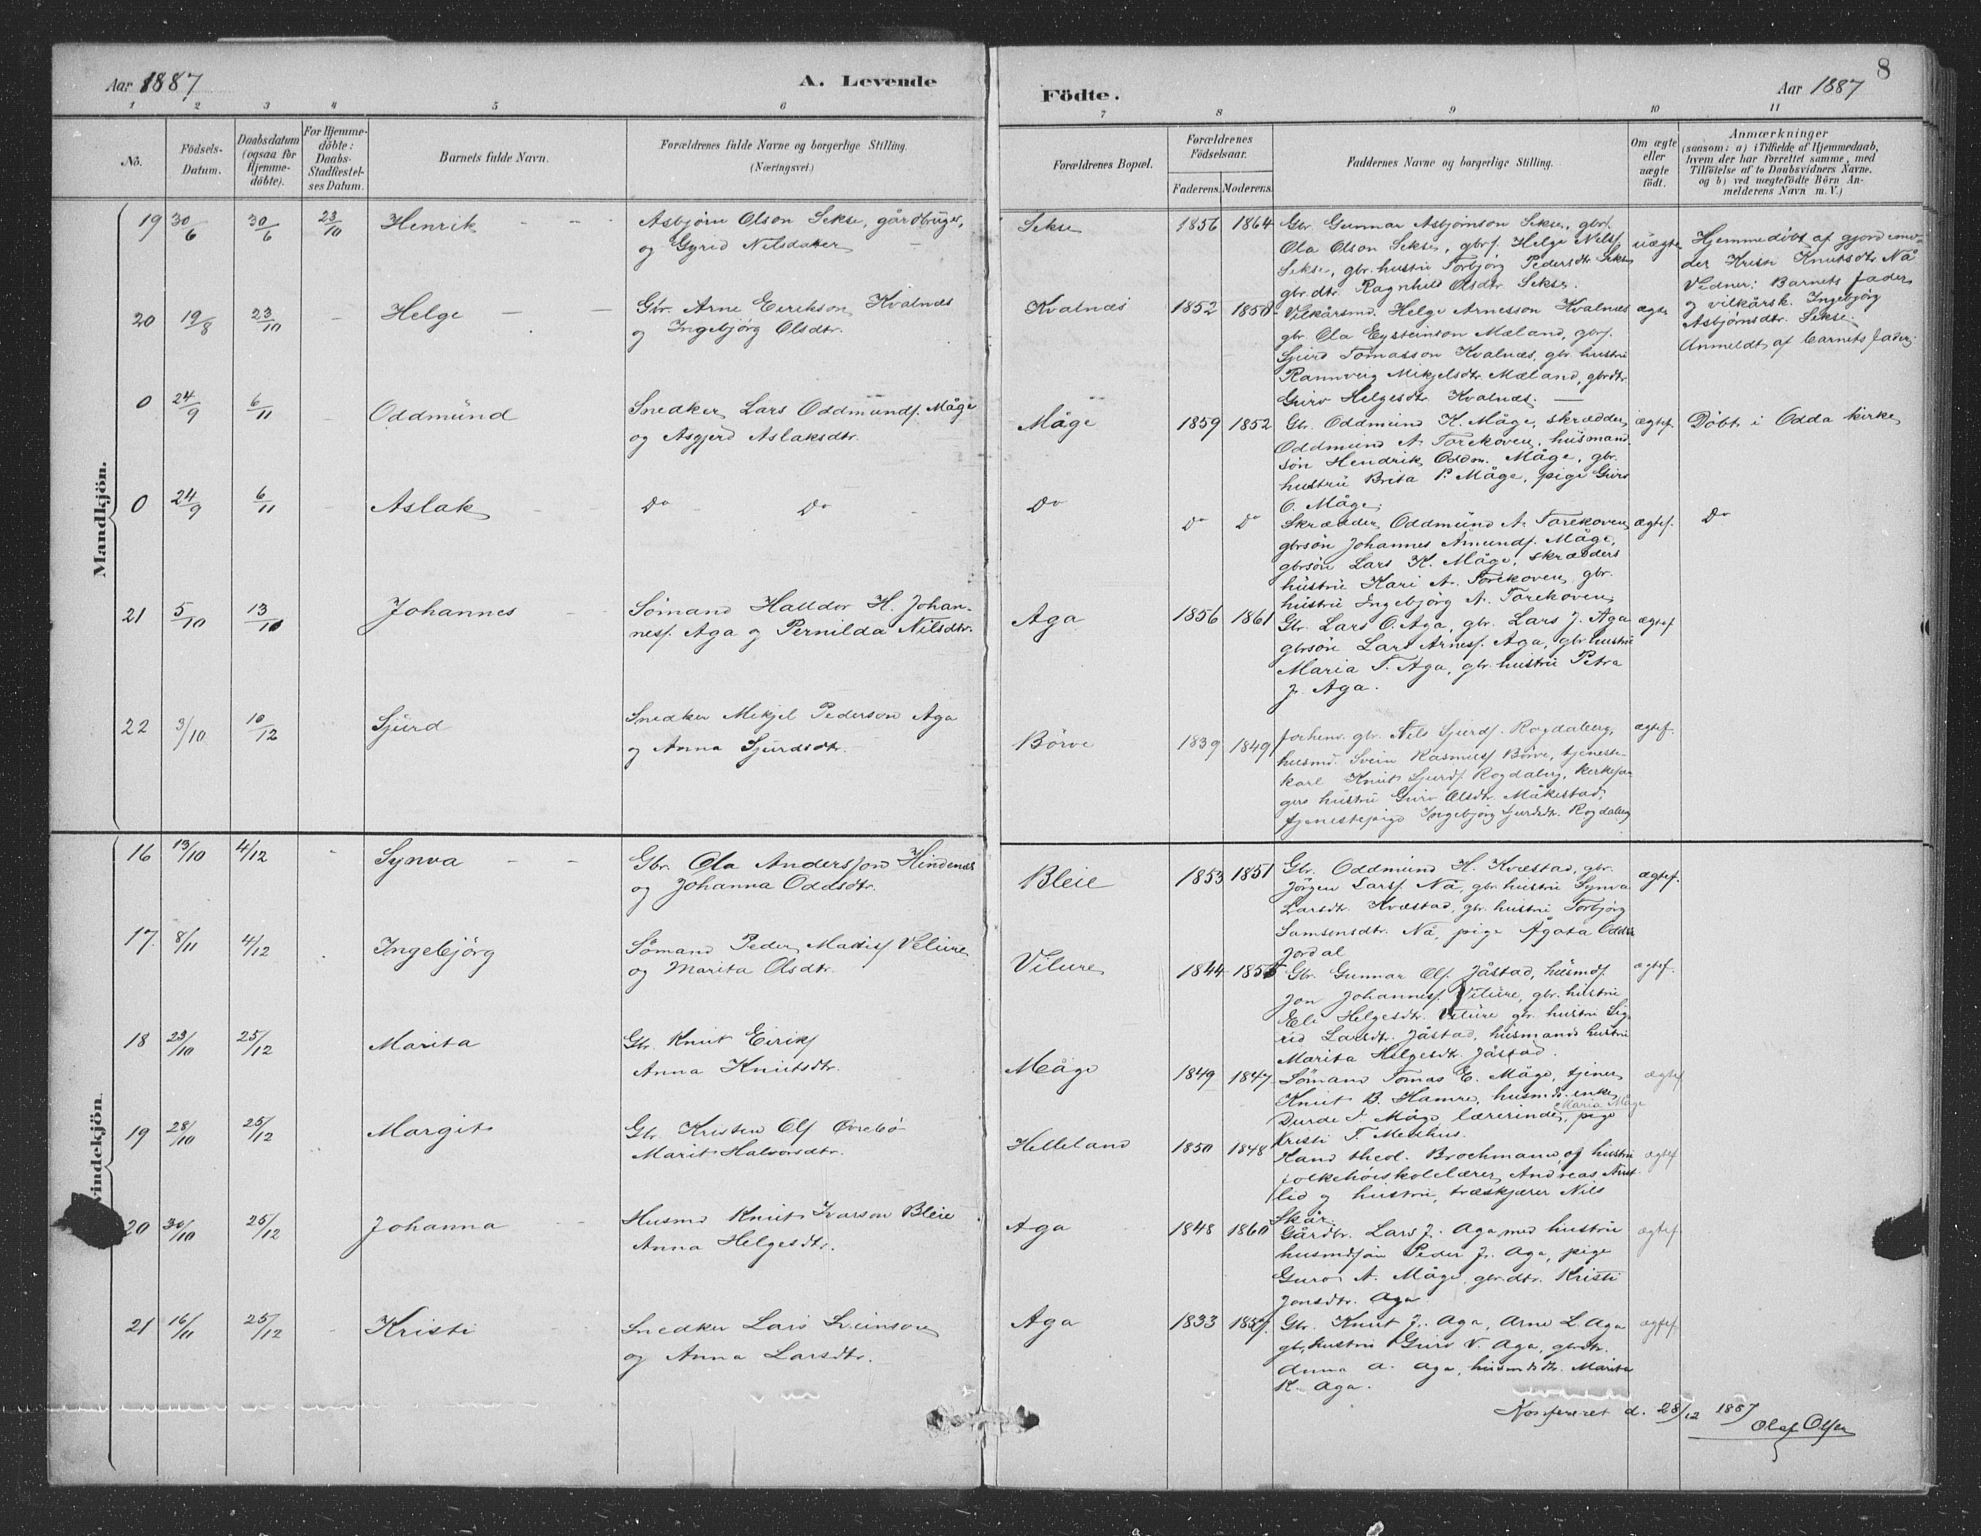 Aar 1887
A. Levende
Födte.
Aar 1887
8
1 2 3 4 5 6 7 8 9 10 11
No.
Födsels-
Datum.
Daabsdatum
(ogsaa for
Hjemme-
döbte).
For Hjemme-
döbte:
Daabs-
Stadfæstel-
ses Datum.
Barnets fulde Navn.
Forældrenes fulde Navne og borgerlige Stilling.
(Næringsvei.)
Forældrenes Bopæl.
Forældrenes
Födselsaar.
Faderens. Moderens.
Faddernes Navne og borgerlige Stilling.
Om ægte
eller
uægte
födt.
Anmærkninger
(saasom: a) i Tilfælde af Hjemmedaab,
hvem der har forrettet samme, med
Tilföielse af to Daabsvidners Navne.
og b) ved uægtefödte Börn An-
melderens Navn m. V.)
Mandkjön.
19 30/6 30/6 23/10 Henrik
Asbjørn Olson Sekse, gårdbruger,
og Gyrid Nilsdatter
Sekse 1856 1864
Gbr. Gunnar Asbjørnson Sekse, gbrs.
Ola Olson Sekse, gbrs. Helge Nilss.
Sekse, gbr. hustru Torbjørg Pedersdtr Sekse
gbr. dtr. Ragnhild Olsdtr. Sekse.
uægte
Hjemmedøbt af gjordemo-
der Kristi Knutsdtr Nå
Vidner: Barnets fader
og vilkårsk. Ingebjørg
Asbjørnsdtr. Sekse.
Anmeldt af barnets fader.
20 19/8 23/10 Helge
Gbr. Arne Eirikson Kvalnes
og Ingebjörg Olsdtr.
Kvalnæs 1852 1858
Vilkårsmd. Helge Arnesson Kvalnæs
gbr. Ola Eysteinson Mæland, gbrs.
Sjurd Tomasson Kvalnæs, gbr. hustru
Rannveig Mikjelsdtr. Mæland, gbrdtr.
Guro Helgesdtr. Kvalnæs.
ægte
0 24/9 6/11 Oddmund
Snedker Lars Oddmunds. Måge
og Asgjerd Aslaksdtr.
Måge 1859 1852
Gbr. Oddmund H. Måge, skrædder
Oddmund A. Torekoven, husmand-
søn Hendrik Oddm. Måge, gbr.
hustru Brita P. Måge, pige Guro
O. Måge.
ægtef. Döbt i Odda kirke
0 24/9 6/11 Aslak
Do Do Do Do Do
Skrædder Oddmund A. Torekoven
gbrsøn Johannes Amunds. Måge,
gbrsøn Lars K. Måge, skrædders
hustru Kari A. Torekoven, gbr.
hustru Ingebjörg A. Torekoven
ægtef. Do
21 5/10 13/10 Johannes
Sømand Halldor H. Johan-
ness. Aga og Pernilda Nilsdtr.
Aga 1856 1861
Gbr. Lars O. Aga, gbr. Lars J. Aga
gbrsøn Lars Arness. Aga, gbr. hustru
Maria T. Aga, gbr. hustru Petra
J. Aga.
ægtef
22 3/10 10/12 Sjurd
Snedker Mikjel Pederson Aga
og Anna Sjurdsdtr.
Börve 1839 1849
forhenv. gbr. Nils Sjurds. Rogdaberg,
husmd. Svein Rasmuss Börve, tjeneste-
karl Knut Sjurds. Rogdaberg, kirkesan-
gers hustru Guro Olsdtr. Måkestad,
tjenestepige Ingebjörg Sjursdtr. Rogdaberg
ægtef.
16 13/10 4/12 Synva
Gbr. Ola Andersson Hindenæs
og Johanna Oddsdtr.
Bleie 1853 1851
Gbr. Oddmund H. Kvæstad, gbr.
Jørgen Larss. Nå, gbr. hustru Synva
Larsdtr. Kvæstad, gbr. hustru Torbjørg
Samsonsdtr. Nå, pige Ågata Oddsd.
Jordal
ægtef.
17. 8/11 4/12 Ingebjörg
Sömand Peder Madss Velure
og Marita Olsdtr.
Vilure 1844 1855
Gbr. Gunnar Ols. Jåstad, husmds.
Jon Johanness. Vilure, gbr. hustru
Eli Helgesdtr. Velure gbr. hustru Sig-
rid Larsdtr. Jåstad, husmands hustru
Marita Helgesdtr. Jåstad.
ægtef.
18 23/10 25/12 Marita
Gbr. Knut Eiriks
Anna Knutsdtr.
Måge 1849 1847
Sömand Tomas E. Måge, tjener
Knut B. Hamre, husmds. enke
Durde J. Måge, lærerinde Maria Måge, pige
Kristi T. Melhus.
ægtef
19 28/10 25/12 Margit
Gbr. Kristen Ols Övrebö
Marit Halvorsdtr.
Helleland 1850 1848
Kand. theol. Brochmann og hustru
folkehøiskolelærer Andreas Aust-
lid og hustru, træskjærer Nils
Skår.
ægtef
Kvindekjön.
20 30/10 25/12 Johanna
Husmd Knut Ivarson Bleie
Anna Helgesdtr.
Aga 1848 1860
Gårdbr. Lars J. Aga med hustru
husmdsøn Peder J. Aga, pige
Guro A. Måge, gbr. dtr. Kristi
Jonsdtr. Aga
ægtef.
21 16/11 25/12 Kristi
Snedker Lars Sveinson
og Anna Larsdtr.
Aga 1833 1857.
Gbr. Knut J. Aga, Arne L. Aga
gbr. hustru Guro V. Aga, gbrdtr.
Anna A. Aga, husmdsdtr. Marita
K. Aga.
ægtef.
Konfereret d. 28/12 1887
Olaf Olsen